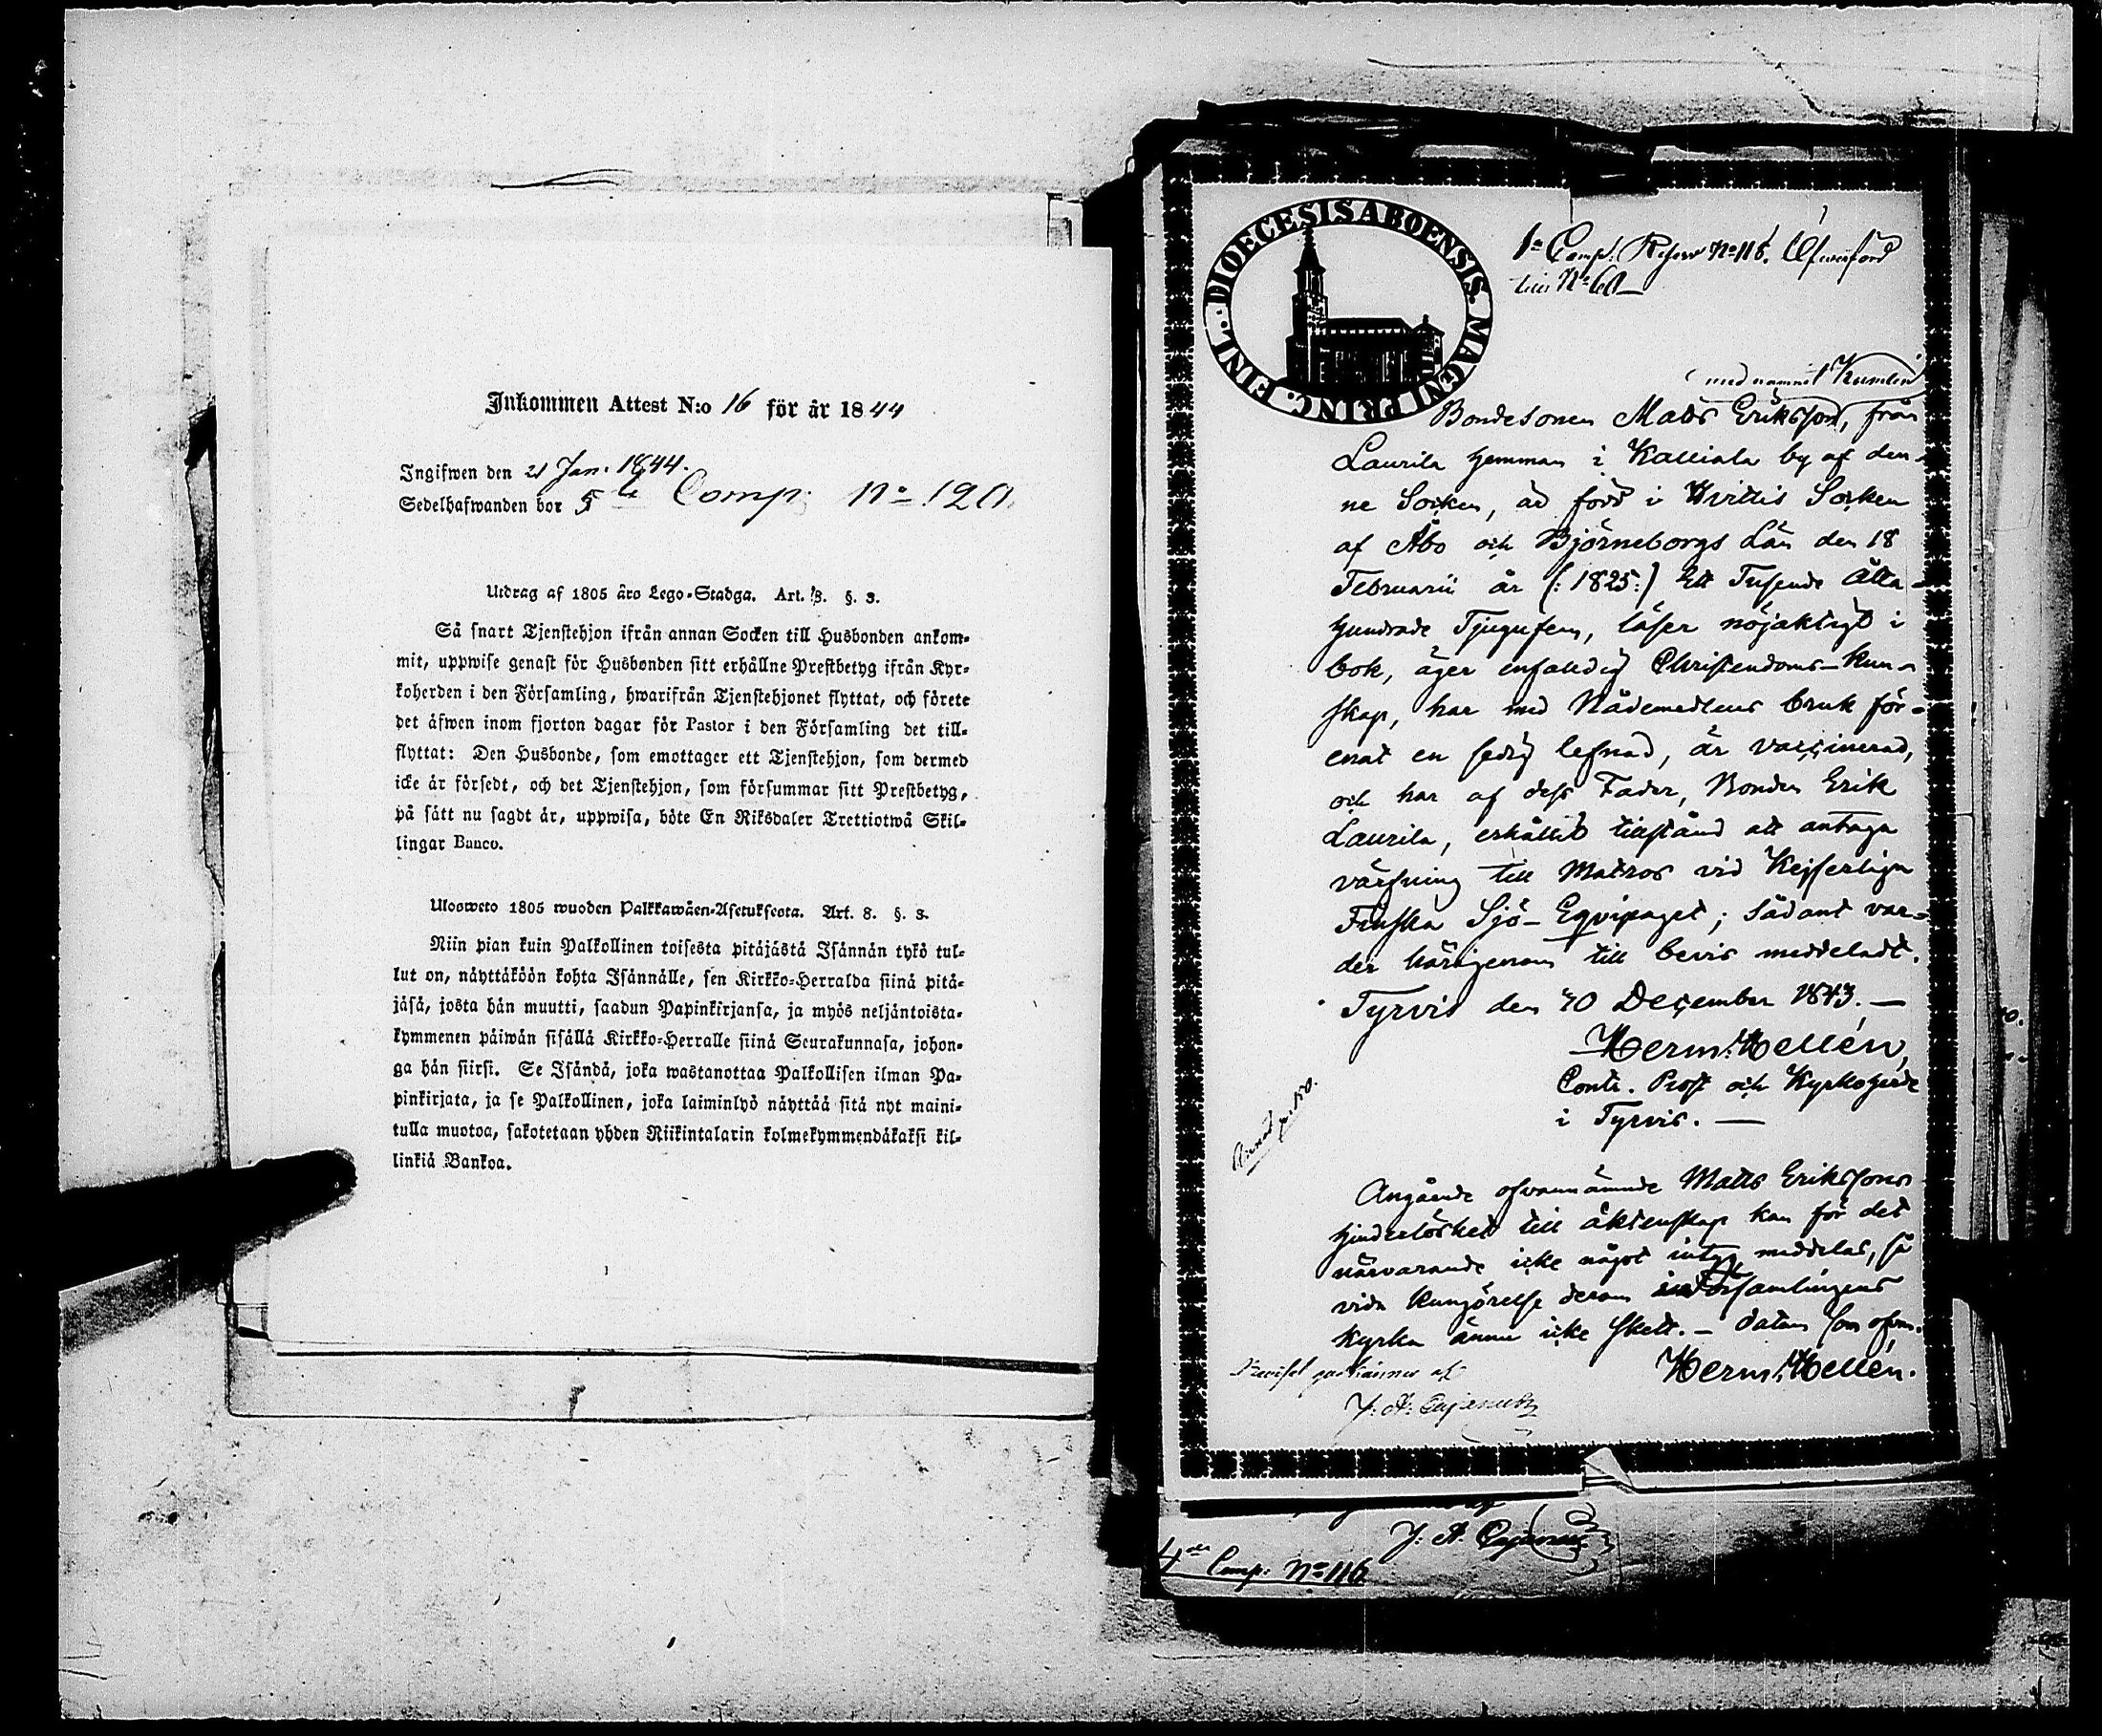 Inkommen Attest N:o 16 för år 1844
Ingifwen den 21 Jan. 1844.
Sedelhafwanden bor 5te Comp. No 120.
Utdrag af 1805 års Lego-Stadga. Art. 8. §. 3.
Så snart Tjenstehjon ifrån annan Socken till Husbonden ankom-
mit, uppwise genast för Husbonden sitt erhållne Prestbetyg ifrån Kyr-
koherden i den Församling, hwarifrån Tjenstehjonet flyttat, och förete
det äfwen inom fjorton dagar för Pastor i den Församling det till-
flyttat: Den Husbonde, som emottager ett Tjenstehjon, som dermed
icke är försedt, och det Tjenstehjon, som försummar sitt Prestbetyg,
på sätt nu sagdt är, uppwisa, böte En Riksdaler Trettiotwå Skil-
lingar Banco.
Ulosweto 1805 wuoden Palkkawäen-Asetuksesta. Art. 8. §. 3.
Niin pian kuin Palkollinen toisesta pitäjästä Isännän tykö tul-
lut on, näyttäköön kohta Isännälle, sen Kirkko-Herralda siinä pitä-
jäsä, josta hän muutti, saadun Papinkirjansa, ja myös neljäntoista-
kymmenen päiwän sisällä Kirkko-Herralle siinä Seurakunnasa, johon-
ga hän siirsi. Se Isändä, joka wastanottaa Palkollisen ilman Pa-
pinkirjata, ja se Palkollinen, joka laiminlyö näyttää sitä nyt maini-
tulla muotoa, sakotetaan yhden Riikintalarin kolmekymmendäkaksi kil-
linkiä Bankoa.
DIOECESIS ABOENSIS. MAGNI PRINC. FINL.
1a Comp. Reserv No 116. Öfwerförd
till No 60
med namnet Kumlin
Bondesonen Matts Eriksson, från
Laurila hemman i Kalliala by af den-
ne Socken, är född i Hvittis Socken
af Åbo och Björneborgs Län den 18
Februarii år (: 1825:) Ett Tusende Åtta-
hundrade Tjugufem, läser nöjaktigt i
bok, äger enfaldig Christendoms-kun-
skap, har med Nådemedlens bruk för-
enat en sedig lefnad, är vaccinerad,
och har af dess Fader, Bonden Erik
Laurila, erhållit tillstånd att antaga
värfning till Matros vid Kejserliga
Finska Sjö-Eqvipaget; sådant var-
der härigenom till bevis meddeladt.
Tyrvis den 10 December 1843.
Herm. Hellén,
Contr. Prost och Kyrkoherde
i Tyrvis.
Angående ofvannämnde Matts Erikssons
hinderlöshet till äktenskap kan för det
närvarande icke något intyg meddelas, så
vida kungörelse derom i Församlingens
kyrka ännu icke skett. - Datum som ofvan.
Herm. Hellén.
godkännes af
J. A. Cajanus
J. A. Cajanus
4de Comp. No 116